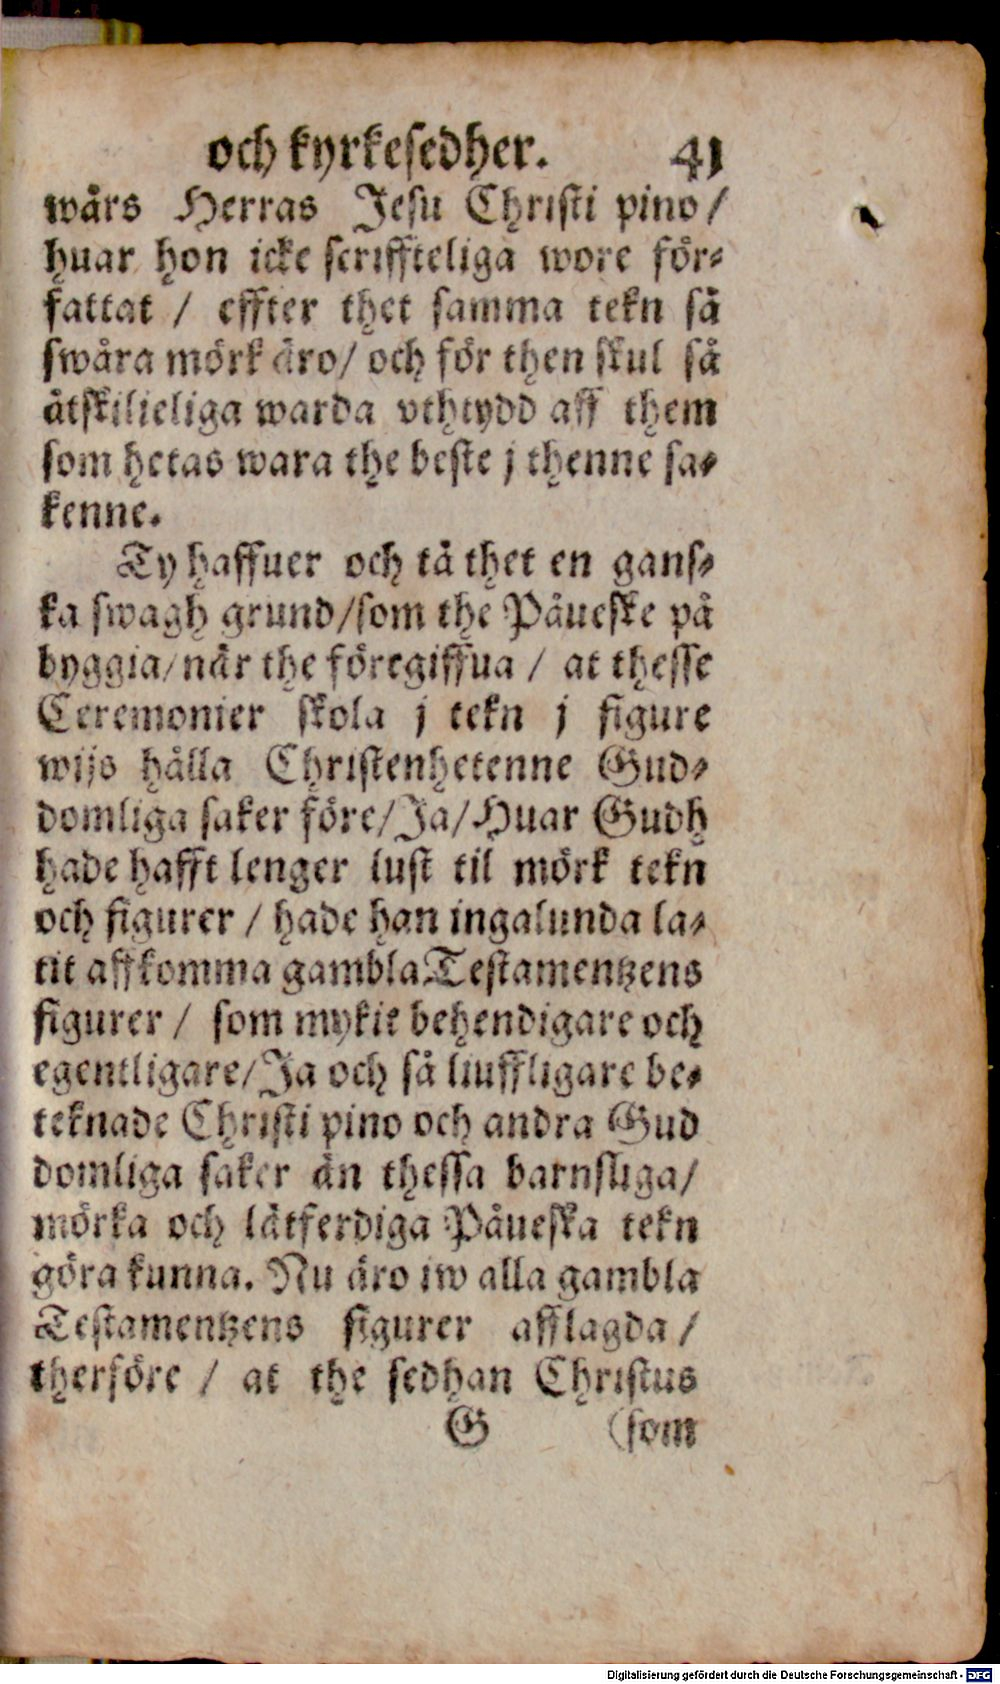 och kyrkesedher. 41
wårs Herras Jesu Christi pino/
huar hon icke scriffteliga wore för-
fattat / effter thet samma tekn så
swåra mörk äro/ och för then skul så
åtskilieliga warda vthtydd aff them
som hetas wara the beste j thenne sa-
kenne.
Ty haffuer och tå thet en gans-
ka swagh grund/som the Påueske på
byggia/när the föregiffua / at thesse
Ceremonier skola j tekn j figure
wijs hålla Christenhetenne Gud-
domliga saker före/Ja/Huar Gudh
hade hafft lenger lust til mörk tekn
och figurer / hade han ingalunda la-
tit affkomma gambla Testamentzens
figurer / som mykit behendigare och
egentligare/Ja och så liuffligare be-
teknade Christi pino och andra Gud
domliga saker än thessa barnsliga/
mörka och lätferdiga Påueska tekn
göra kunna. Nu äro iw alla gambla
Testamentzens figurer afflagda /
therföre / at the sedhan Christus
G (som
Digitalisierung gefördert durch die Deutsche Forschungsgemeinschaft - DFG